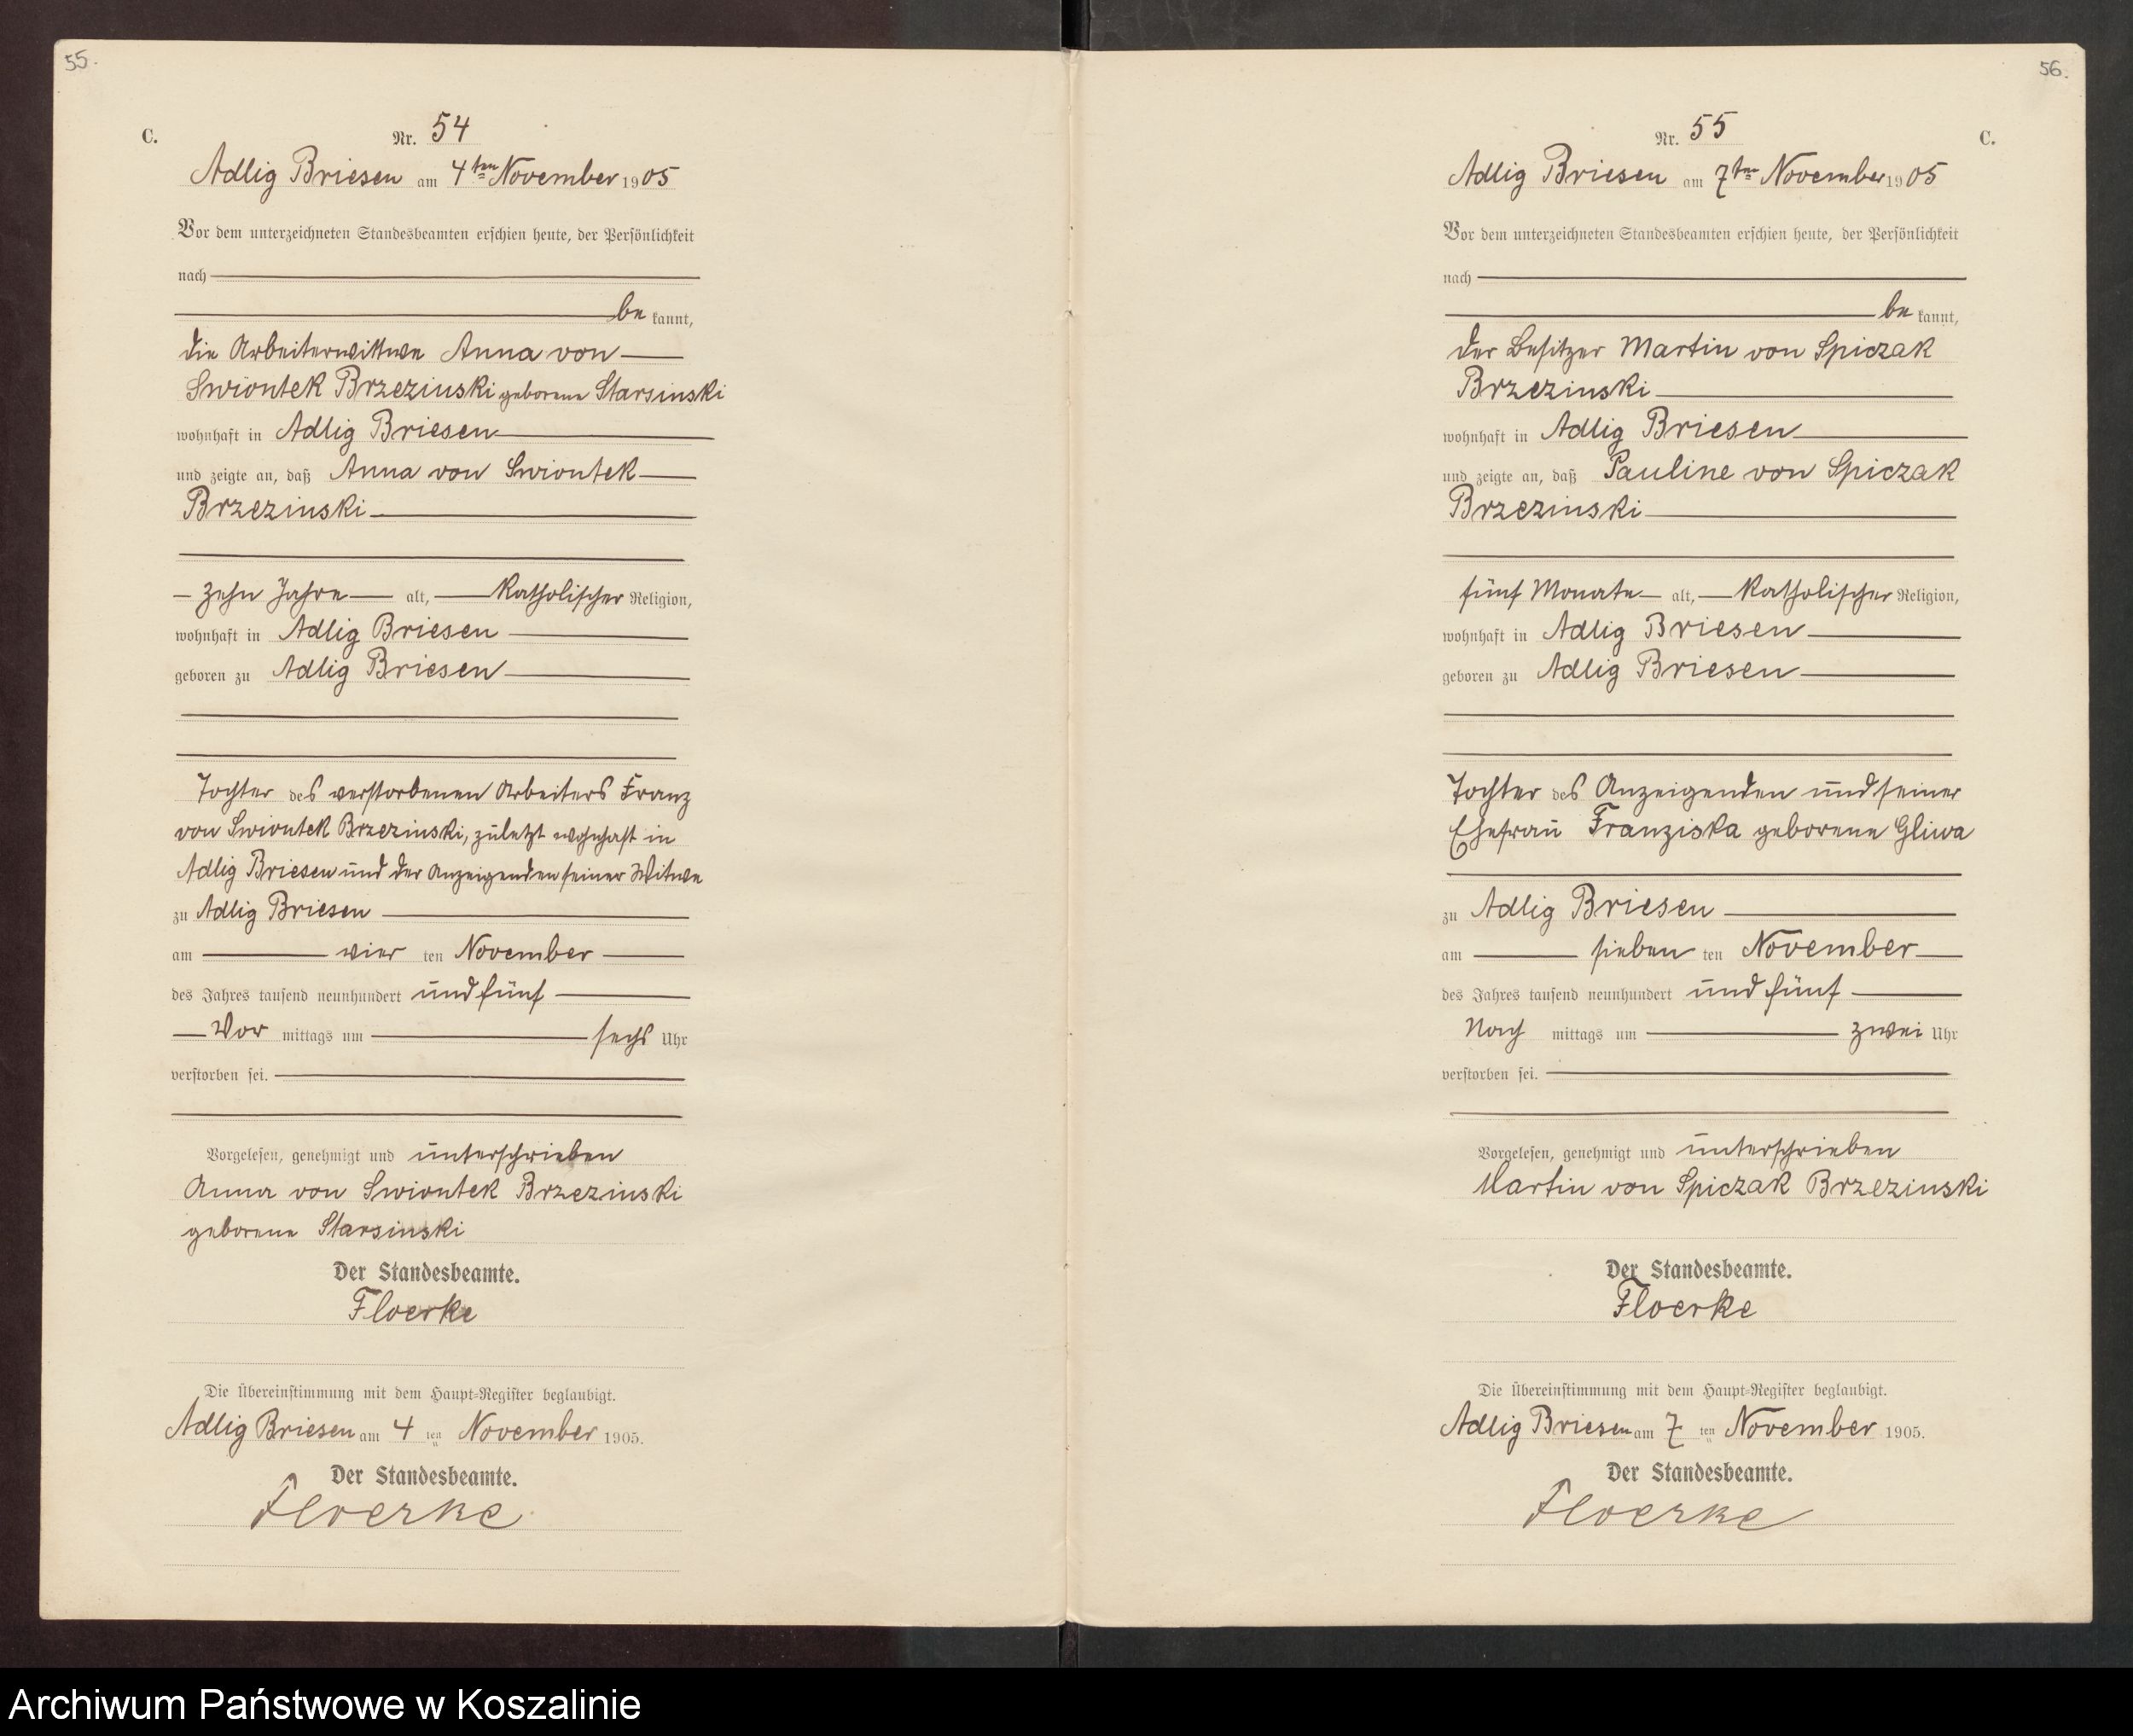 55.
C.
Nr. 54
Adlig Briesen am 4ten November 1905
Vor dem unterzeichneten Standesbeamten erschien heute, der Persönlichkeit
nach
be kannt,
die Arbeiterwittwe Anna von
Swiontek Brzezinski geborene Starsinski
wohnhaft in Adlig Briesen
und zeigte an, daß Anna von Swiontek
Brzezinski
zehn Jahre alt, katholischer Religion,
wohnhaft in Adlig Briesen
geboren zu Adlig Briesen
Tochter des verstorbenen Arbeiters Franz
von Swiontek Brzezinski, zuletzt wohnhaft in
Adlig Briesen und der Anzeigenden seiner Witwe
zu Adlig Briesen
am vier ten November
des Jahres tausend neunhundert und fünf
Vor mittags um sechs Uhr
verstorben sei.
Vorgelesen, genehmigt und unterschrieben
Anna von Swiontek Brzezinski
geborene Starsinski
Der Standesbeamte.
Floerke
Die Übereinstimmung mit dem Haupt-Register beglaubigt.
Adlig Briesen am 4 ten November 1905.
Der Standesbeamte.
Floerke
56.
Nr. 55
C.
Adlig Briesen am 7ten November 1905
Vor dem unterzeichneten Standesbeamten erschien heute, der Persönlichkeit
nach
be kannt,
der Besitzer Martin von Spiczak
Brzezinski
wohnhaft in Adlig Briesen
und zeigte an, daß Pauline von Spiczak
Brzezinski
fünf Monate alt, katholischer Religion,
wohnhaft in Adlig Briesen
geboren zu Adlig Briesen
Tochter des Anzeigenden und seiner
Ehefrau Franziska geborene Gliwa
zu Adlig Briesen
am sieben ten November
des Jahres tausend neunhundert und fünf
Nach mittags um zwei Uhr
verstorben sei.
Vorgelesen, genehmigt und unterschrieben
Martin von Spiczak Brzezinski
Der Standesbeamte.
Floerke
Die Übereinstimmung mit dem Haupt-Register beglaubigt.
Adlig Briesen am 7 ten November 1905.
Der Standesbeamte.
Floerke
Archiwum Państwowe w Koszalinie